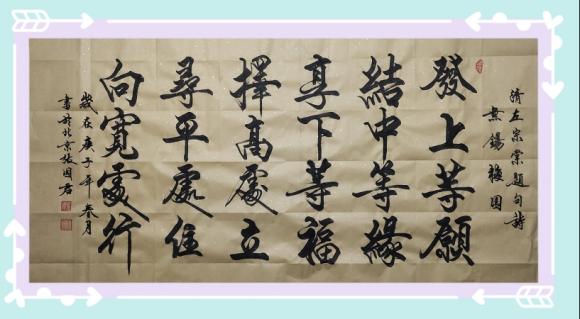 清左宗棠题句诗
無錫梅園
發上等願
結中等緣
享下等福
擇高處立
尋平處住
向寬處行
歲在庚子年春月
書於北京張國君